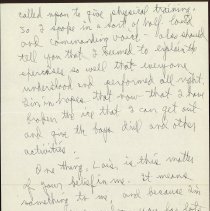 called upon to give physical training.
So I spoke in a sort of half loud
and commanding voice - also should
tell you that I seemed to explain the
exercises so well that everyone
understood and performed all right.
I'm in hopes that now that I have
broken the ice that I can get out
and give the boys drill and other
activities.
One thing, Lois, is this matter
of your belief in me. It means
something to me, and because I'm